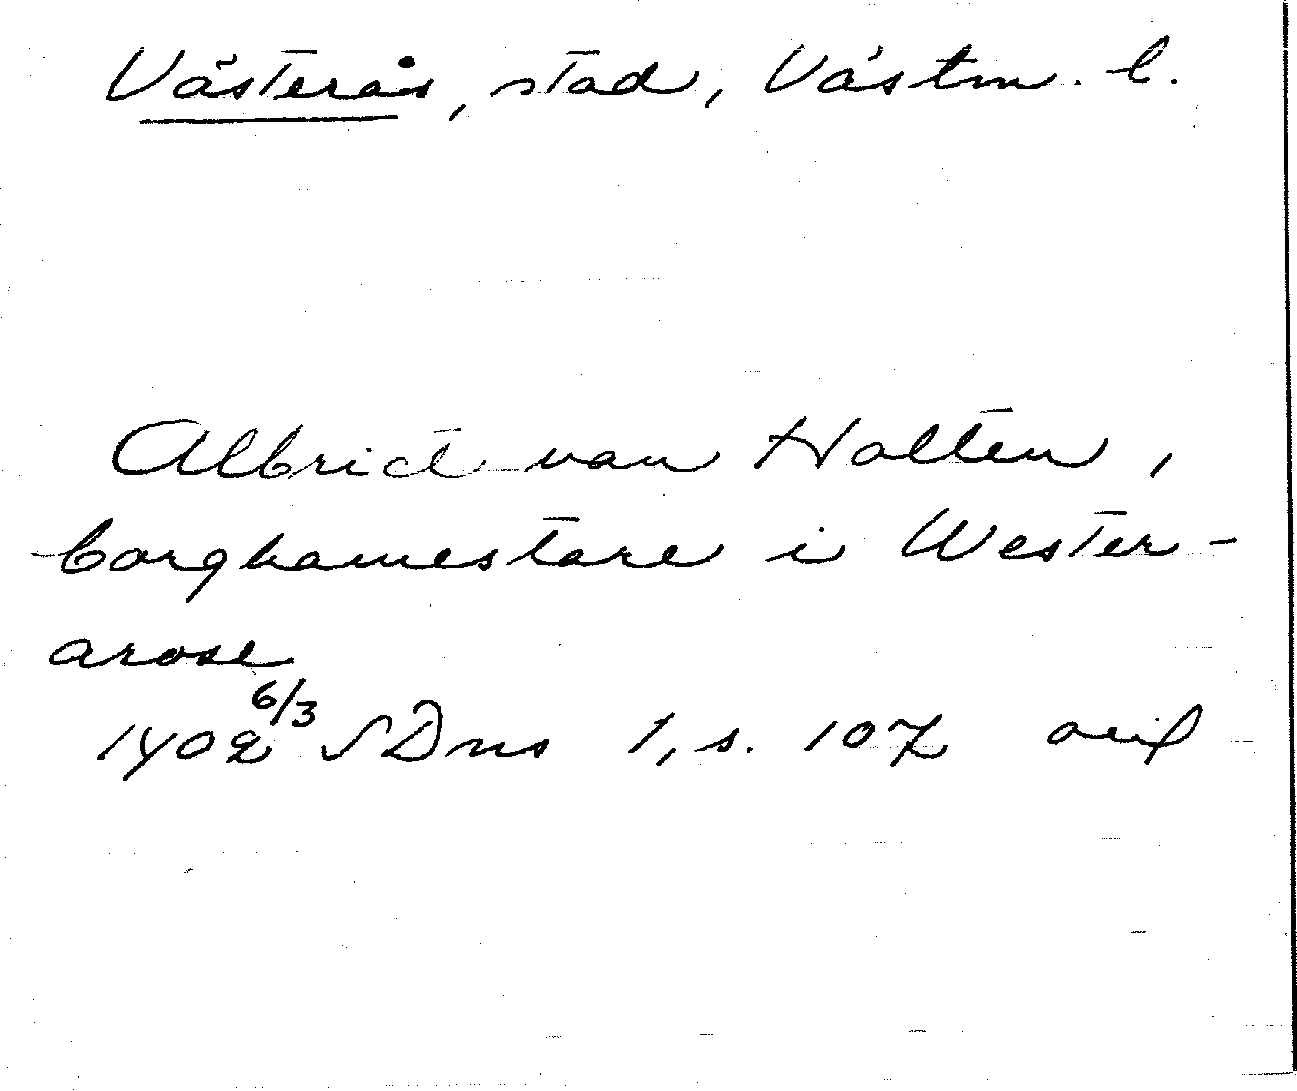 Västerås, stad, Västm. l.
Albrict van Holten,
borghamestare i Wester-
arose
1402 6/3 SDns 1, s. 107 avif